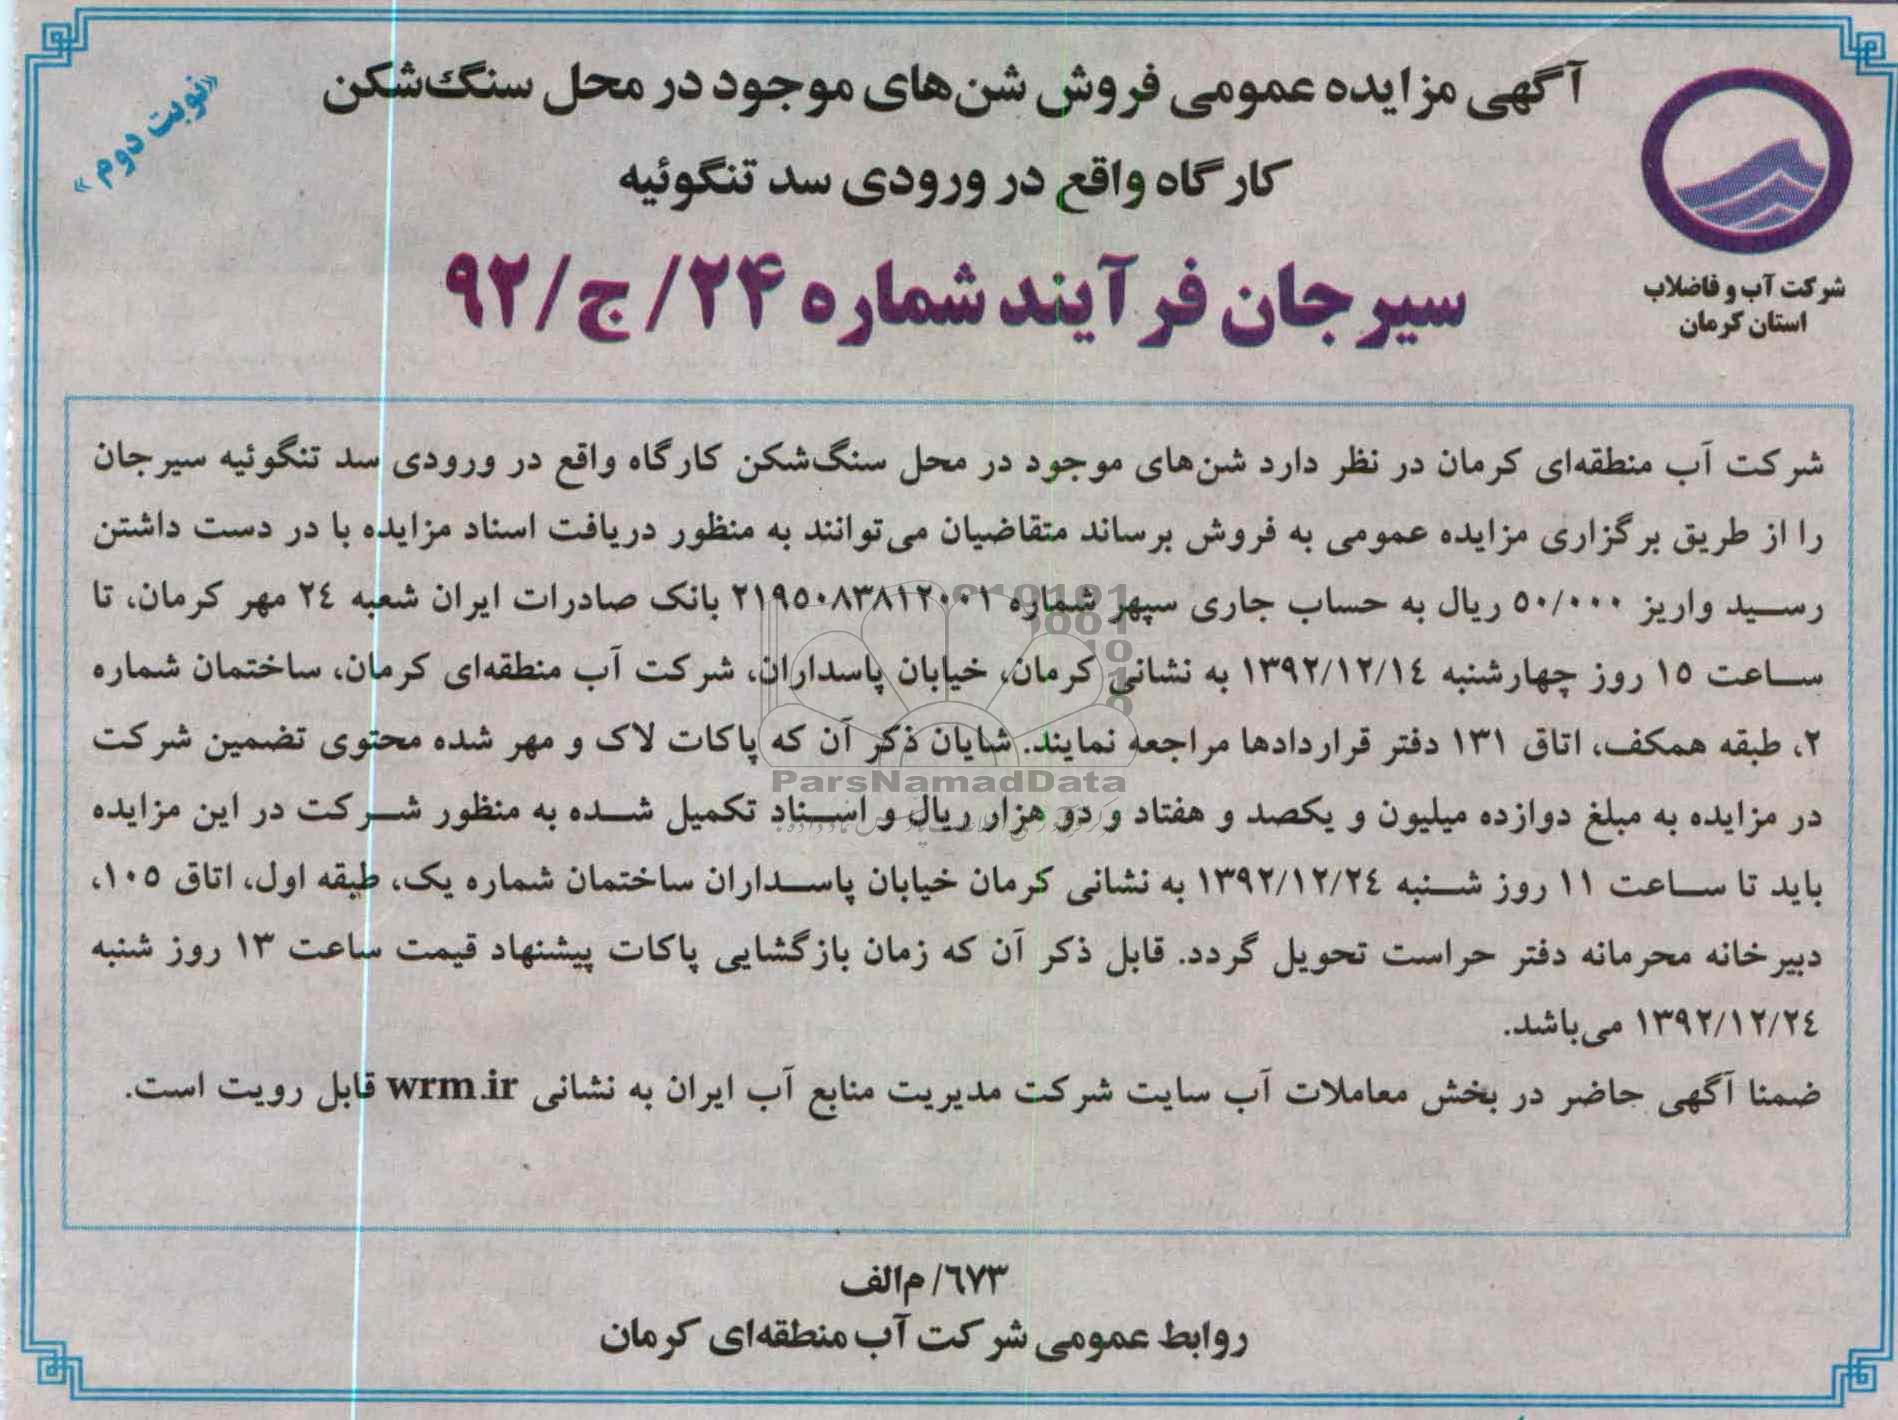 «نوبت دوم»
آگهی مزایده عمومی فروش شن‌های موجود در محل سنگ‌شکن
کارگاه واقع در ورودی سد تنگوئیه
سیرجان فرآیند شماره ۲۴/ ج/ ۹۲
شرکت آب و فاضلاب
استان کرمان
شرکت آب منطقه‌ای کرمان در نظر دارد شن‌های موجود در محل سنگ‌شکن کارگاه واقع در ورودی سد تنگوئیه سیرجان
را از طریق برگزاری مزایده عمومی به فروش برساند متقاضیان می‌توانند به منظور دریافت اسناد مزایده با در دست داشتن
رسید واریز ۵۰/۰۰۰ ریال به حساب جاری سپهر شماره ۲۱۹۵۰۸۳۸۱۲۰۰۱ بانک صادرات ایران شعبه ۲٤ مهر کرمان، تا
ساعت ۱۵ روز چهارشنبه ۱۳۹۲/۱۲/۱٤ به نشانی کرمان، خیابان پاسداران، شرکت آب منطقه‌ای کرمان، ساختمان شماره
۲، طبقه همکف، اتاق ۱۳۱ دفتر قراردادها مراجعه نمایند. شایان ذکر آن که پاکات لاک و مهر شده محتوی تضمین شرکت
در مزایده به مبلغ دوازده میلیون و یکصد و هفتاد و دو هزار ریال و اسناد تکمیل شده به منظور شرکت در این مزایده
باید تا ساعت ۱۱ روز شنبه ۱۳۹۲/۱۲/۲٤ به نشانی کرمان خیابان پاسداران ساختمان شماره یک، طبقه اول، اتاق ۱۰۵،
دبیرخانه محرمانه دفتر حراست تحویل گردد. قابل ذکر آن که زمان بازگشایی پاکات پیشنهاد قیمت ساعت ۱۳ روز شنبه
۱۳۹۲/۱۲/۲٤ می‌باشد.
ضمنا آگهی حاضر در بخش معاملات آب سایت شرکت مدیریت منابع آب ایران به نشانی wrm.ir قابل رویت است.
ParsNamadData
٦۷۳/ م‌الف
روابط عمومی شرکت آب منطقه‌ای کرمان